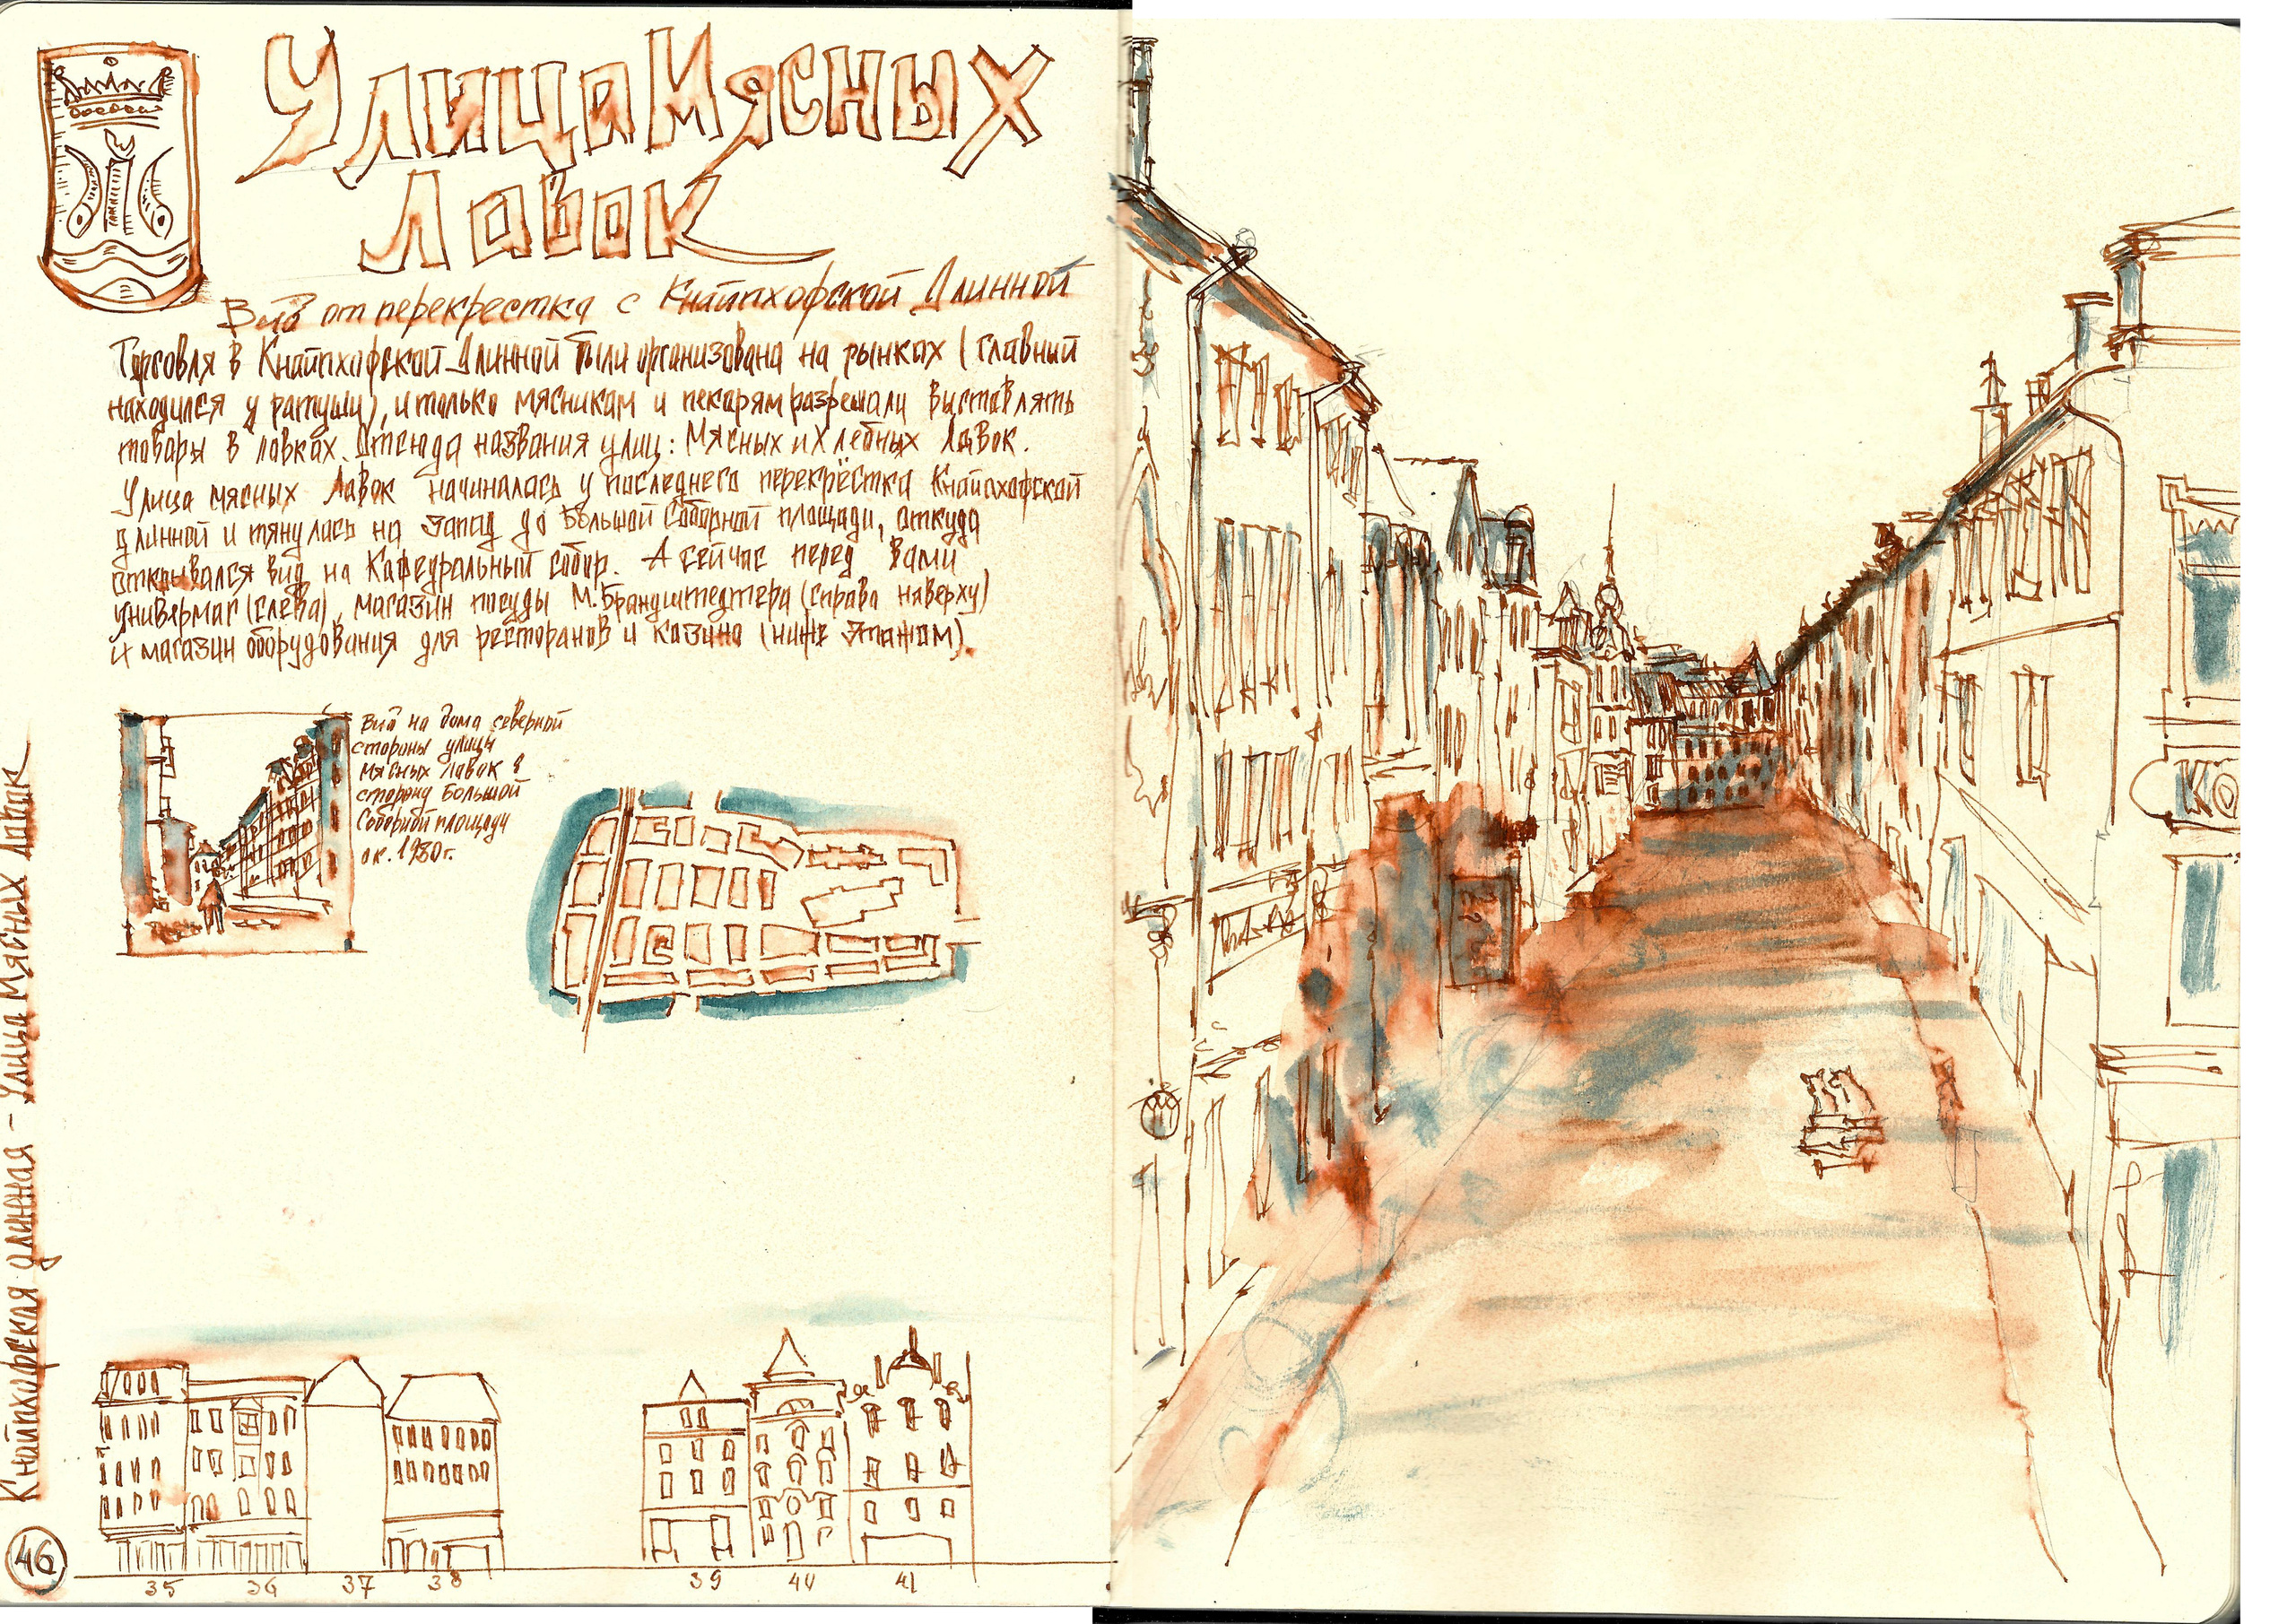 Улица Мясных
Лавок
Вид от перекрестка с Кнайпхофской Длинной
Торговля в Кнайпхофской Длинной были организована на рынках (главный
находился у ратуши), и только мясникам и пекарям разрешали выставлять
товары в лавках. Отсюда названия улиц: Мясных и Хлебных Лавок.
Улица мясных Лавок начиналась у последнего перекрёстка Кнайпхофской
длинной и тянулась на запад до Большой Соборной площади, откуда
открывался вид на Кафедральный собор. А сейчас перед Вами
универмаг (слева), магазин посуды М. Брандштедтера (справа наверху)
и магазин оборудования для ресторанов и казино (ниже этажом).
Вид на дома северной
стороны улицы
Мясных Лавок в
сторону Большой
Соборной площади
ок. 1930г.
Кнайпхофская длинная - Улица Мясных Лавок
46
35 36 37 38 39 40 41
КО